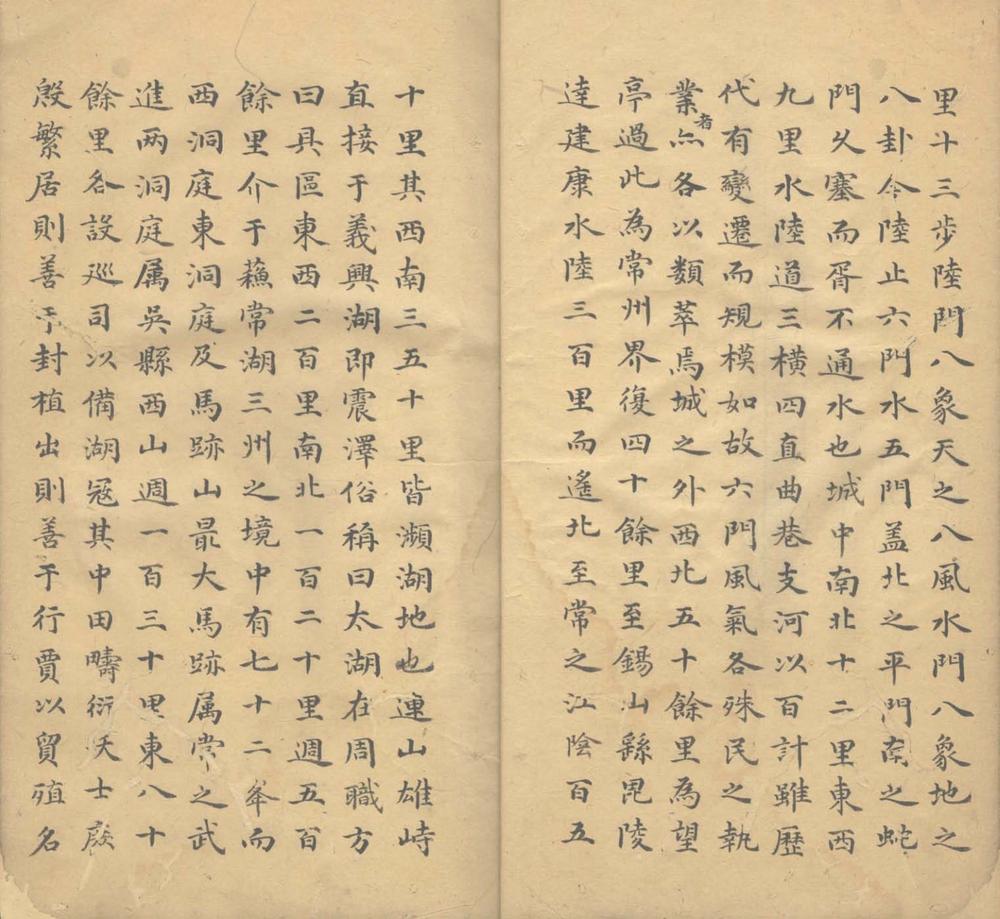 里十三步陸門八象天之八風水門八象地之
八卦今陸止六門水五門盖北之平門南之蛇
門久塞而胥不通水也城中南北十二里東西
九里水陸道三横四直曲巷支河以百計雖歷
代有變遷而規模如故六門風氣各殊民之執
業者亦各以類萃焉城之外西北五十餘里為望
亭過此為常州界復四十餘里至錫山繇毘陵
達建康水陸三百里而遙北至常之江陰百五
十里其西南三五十里皆瀕湖地也連山雄峙
直接于義興湖即震澤俗稱曰太湖在周職方
曰具區東西二百里南北一百二十里週五百
餘里介于蘓常湖三州之境中有七十二峯而
西洞庭東洞庭及馬跡山最大馬跡属常之武
進两洞庭属吳縣西山週一百三十里東八十
餘里各設廵司以備湖寇其中田疇衍沃士庶
殷繁居則善于封植出則善于行賈以貿殖名